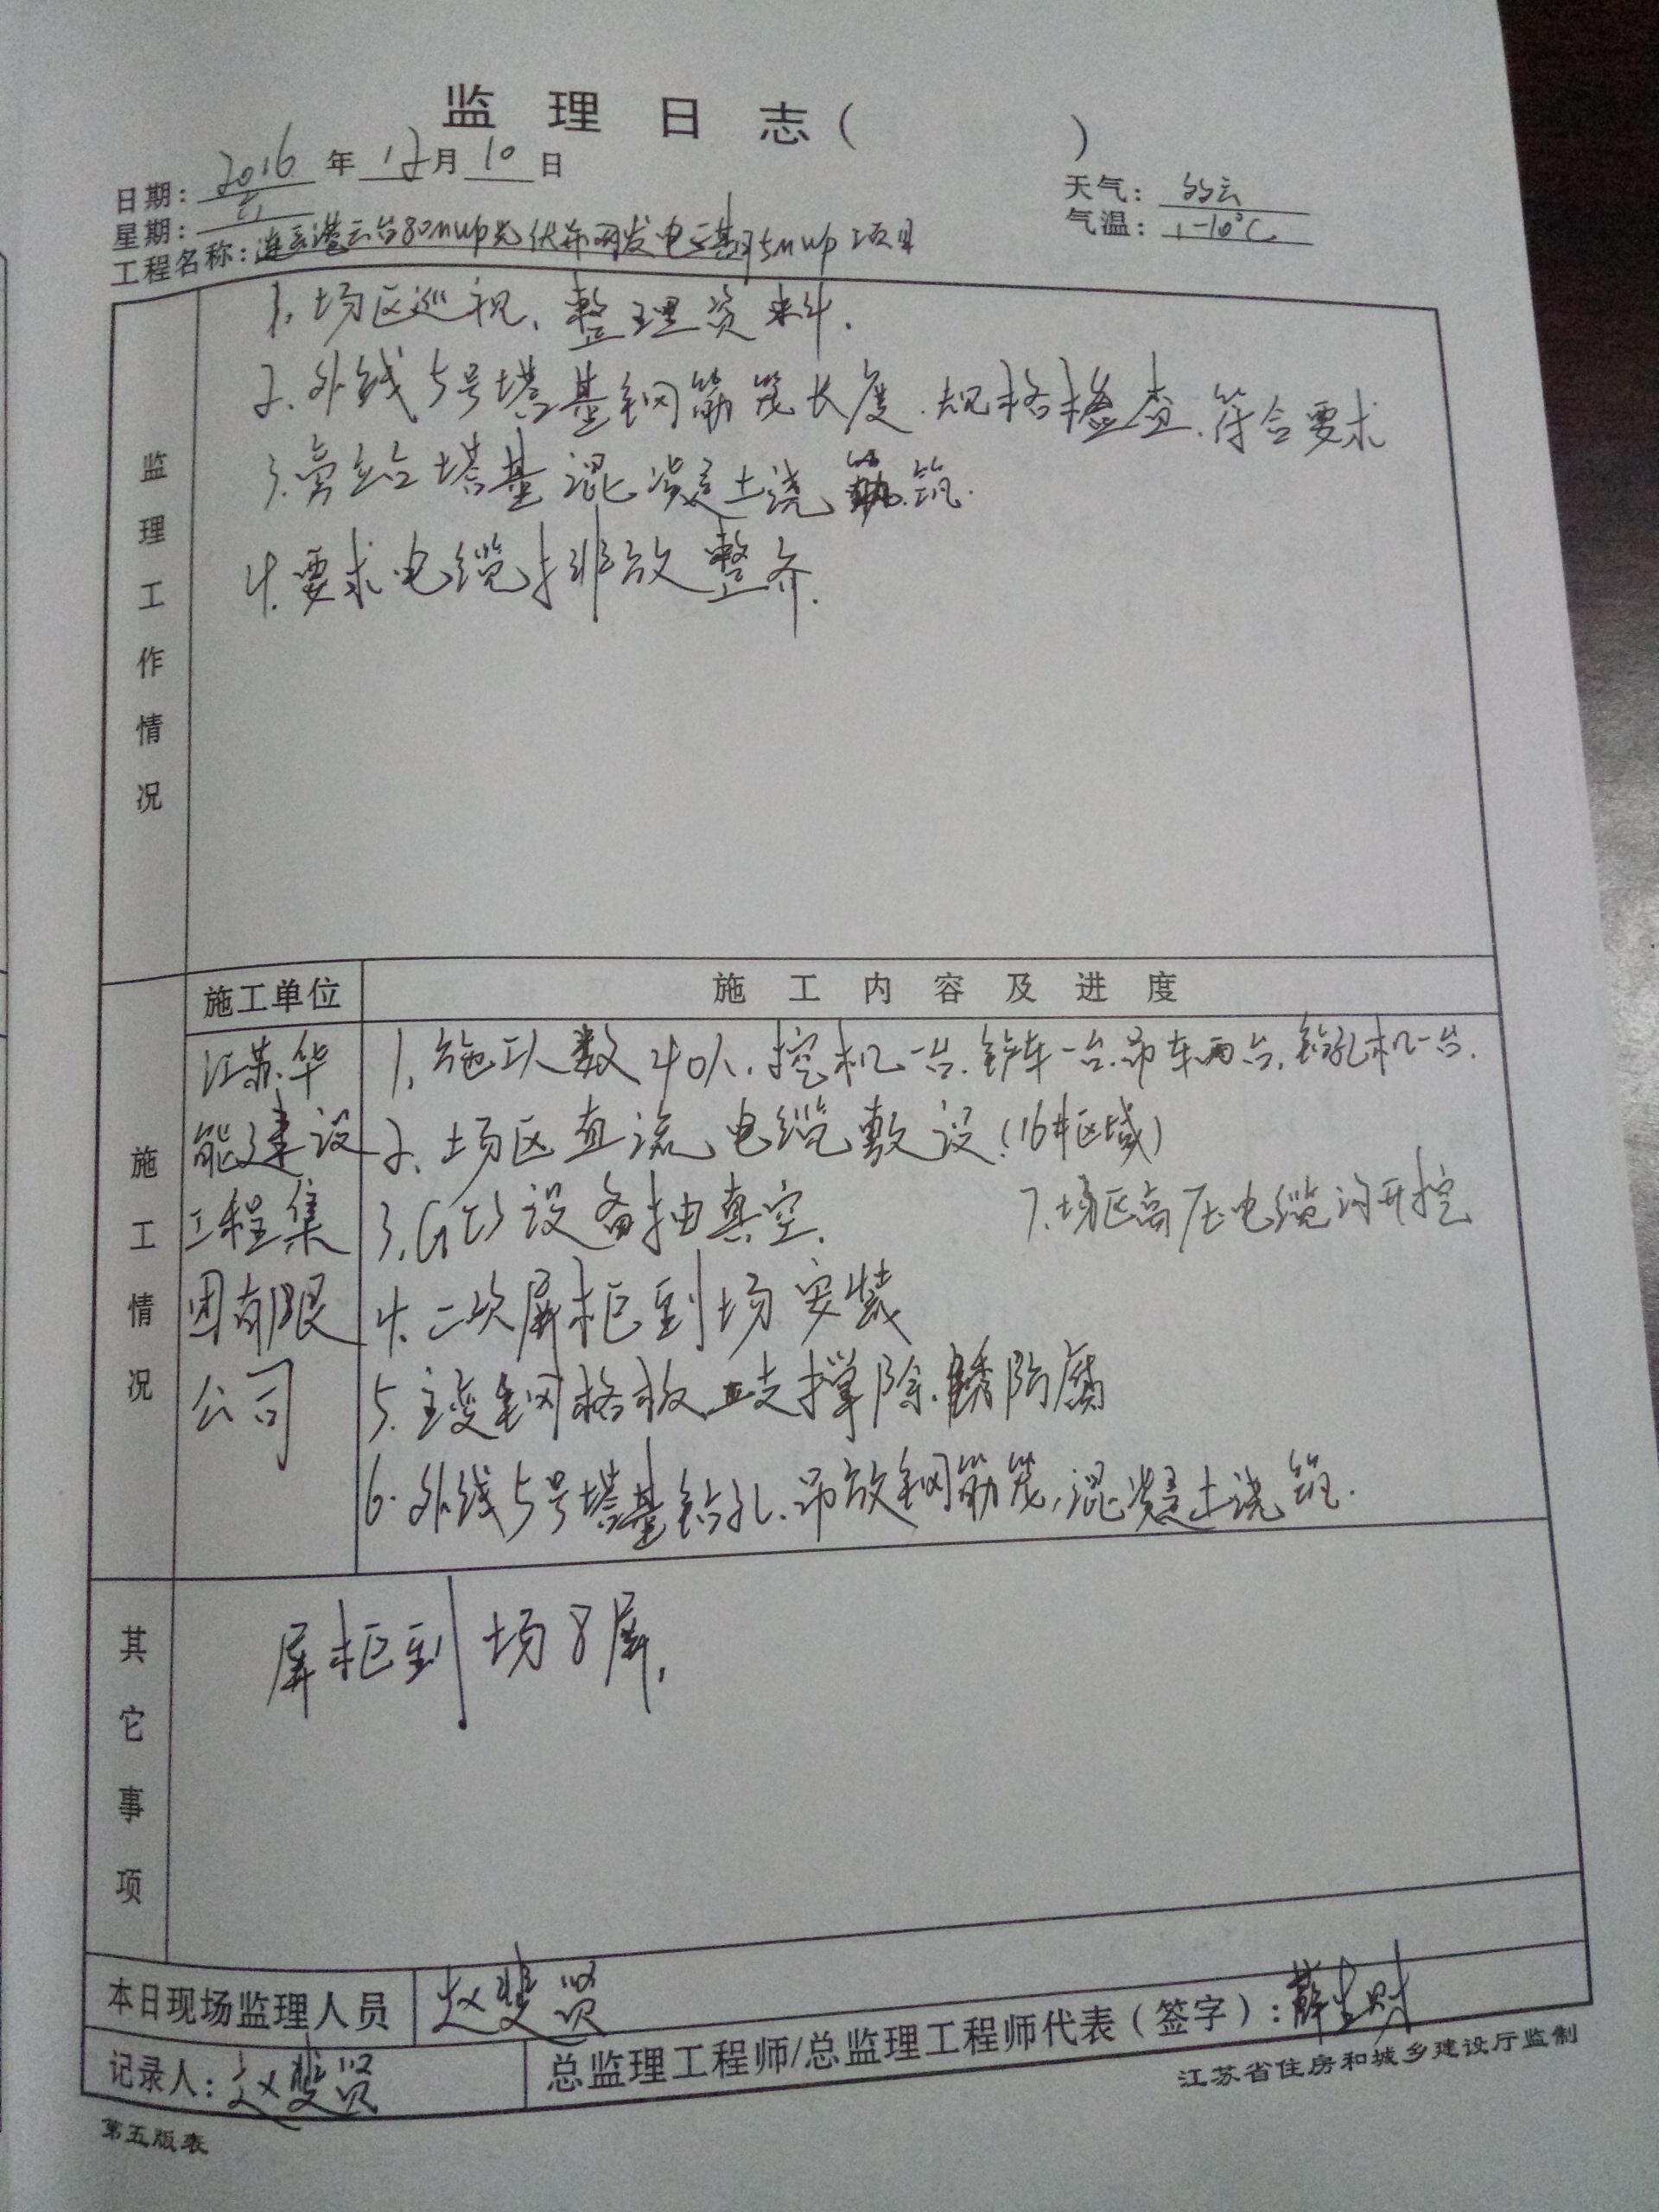 监理日志（ ）
日期：2016年12月10日
星期：六
天气：多云
气温：1-10℃
工程名称：连云港云台80mwp光伏并网发电二期75mwp项目
监理工作情况
1.场区巡视、整理资料.
2、外线5号塔基钢筋笼长度.规格检查、符合要求
3.旁站塔基混凝土浇筑.
4.要求电缆排放整齐.
施工情况
施工单位
施工内容及进度
江苏华
能建设
工程集
团有限
公司
1.施工人数40人、挖机一台.铲车一台.吊车两台.钻孔机一台.
2、场区直流电缆敷设.(16#区域)
3.GIS设备抽真空.
7.场区高压电缆沟开挖
4.二次屏柜到场安装
5.主变钢格板支撑除锈防腐
6.外线5号塔基钻孔.吊放钢筋笼,混凝土浇筑.
其它事项
屏柜到场8屏.
本日现场监理人员
赵斐贤
记录人：赵斐贤
总监理工程师/总监理工程师代表（签字）：薛生财
江苏省住房和城乡建设厅监制
第五版表